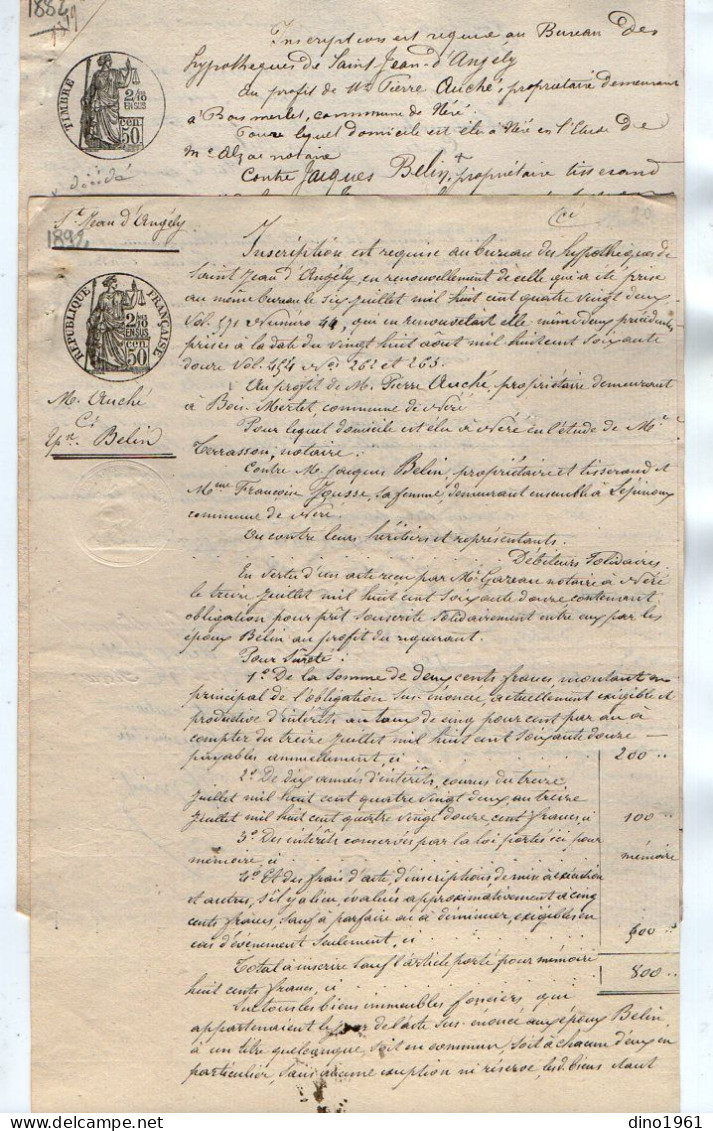 1882
Inscription est requise au Bureau des
hypothèques de Saint Jean-d'Angély
au profit de Mr Pierre Auché, propriétaire demeurant
à Bois merlet, commune de Néré
Pour lequel domicile est élu à Néré en l'Etude de
Me notaire
Contre Jacques Belin, propriétaire tisserand
TIMBRE
2/10
EN SUS
50 CEN
décédé
St Jean d'Angély
1892
20
REPUBLIQUE FRANÇAISE
2/10
EN SUS
CEN 50
M. Auché
Ct
Epx Belin
Inscription est requise au bureau des hypothèques de
Saint Jean d'Angély, en renouvellement de celle qui a été prise
au même bureau le six juillet mil huit cent quatre vingt deux
Vol. 591 Numéro 44, qui en renouvelait elle même deux précédentes
prises à la date du vingt huit août mil huit cent soixante
douze Vol. 454 Nos 262 et 263.
Au profit de M. Pierre Auché, propriétaire demeurant
à Bois-Merlet, commune de Néré
Pour lequel domicile est élu à Néré en l'étude de Me
Terrasson, notaire.
Contre M. Jacques Belin, propriétaire et tisserand et
Mme Françoise Jousse, sa femme, demeurant ensemble à Lépinoux
commune de Néré.
Ou contre leurs héritiers et représentants.
Débiteurs Solidaires
En vertu d'un acte reçu par Me Gareau notaire à Néré
le treize juillet mil huit cent soixante douze contenant
obligation pour prêt souscrite solidairement entre eux par les
époux Belin au profit du requérant.
Pour Sûreté:
1º De la somme de deux cents francs, montant en
principal de l'obligation sus-énoncée, actuellement exigible et
productive d'intérêts au taux de cinq pour cent par an à
compter du treize juillet mil huit cent soixante douze —
payables annuellement, ci 200 ..
2º De dix années d'intérêts, courus du treize
juillet mil huit cent quatre vingt deux au treize
juillet mil huit cent quatre vingt douze cent francs, ci 100 ..
3º Des intérêts conservés par la loi portés ici pour
mémoire, ci mémoire
4º Et des frais d'acte, d'inscriptions de mise à exécution
et autres, s'il y a lieu, évalués approximativement à cinq
cents francs, sauf à parfaire ou à diminuer, exigibles en
cas d'événement seulement, ci 500 ..
Total à inscrire sauf l'article porté pour mémoire
huit cents francs, ci 800 ..
Sur tous les biens immeubles fonciers qui
appartenaient le jour de l'acte sus-énoncé aux époux Belin,
à un titre quelconque, soit en commun, soit à chacun d'eux en
particulier, sans aucune exception ni réserve, les d. biens étant
dino1961